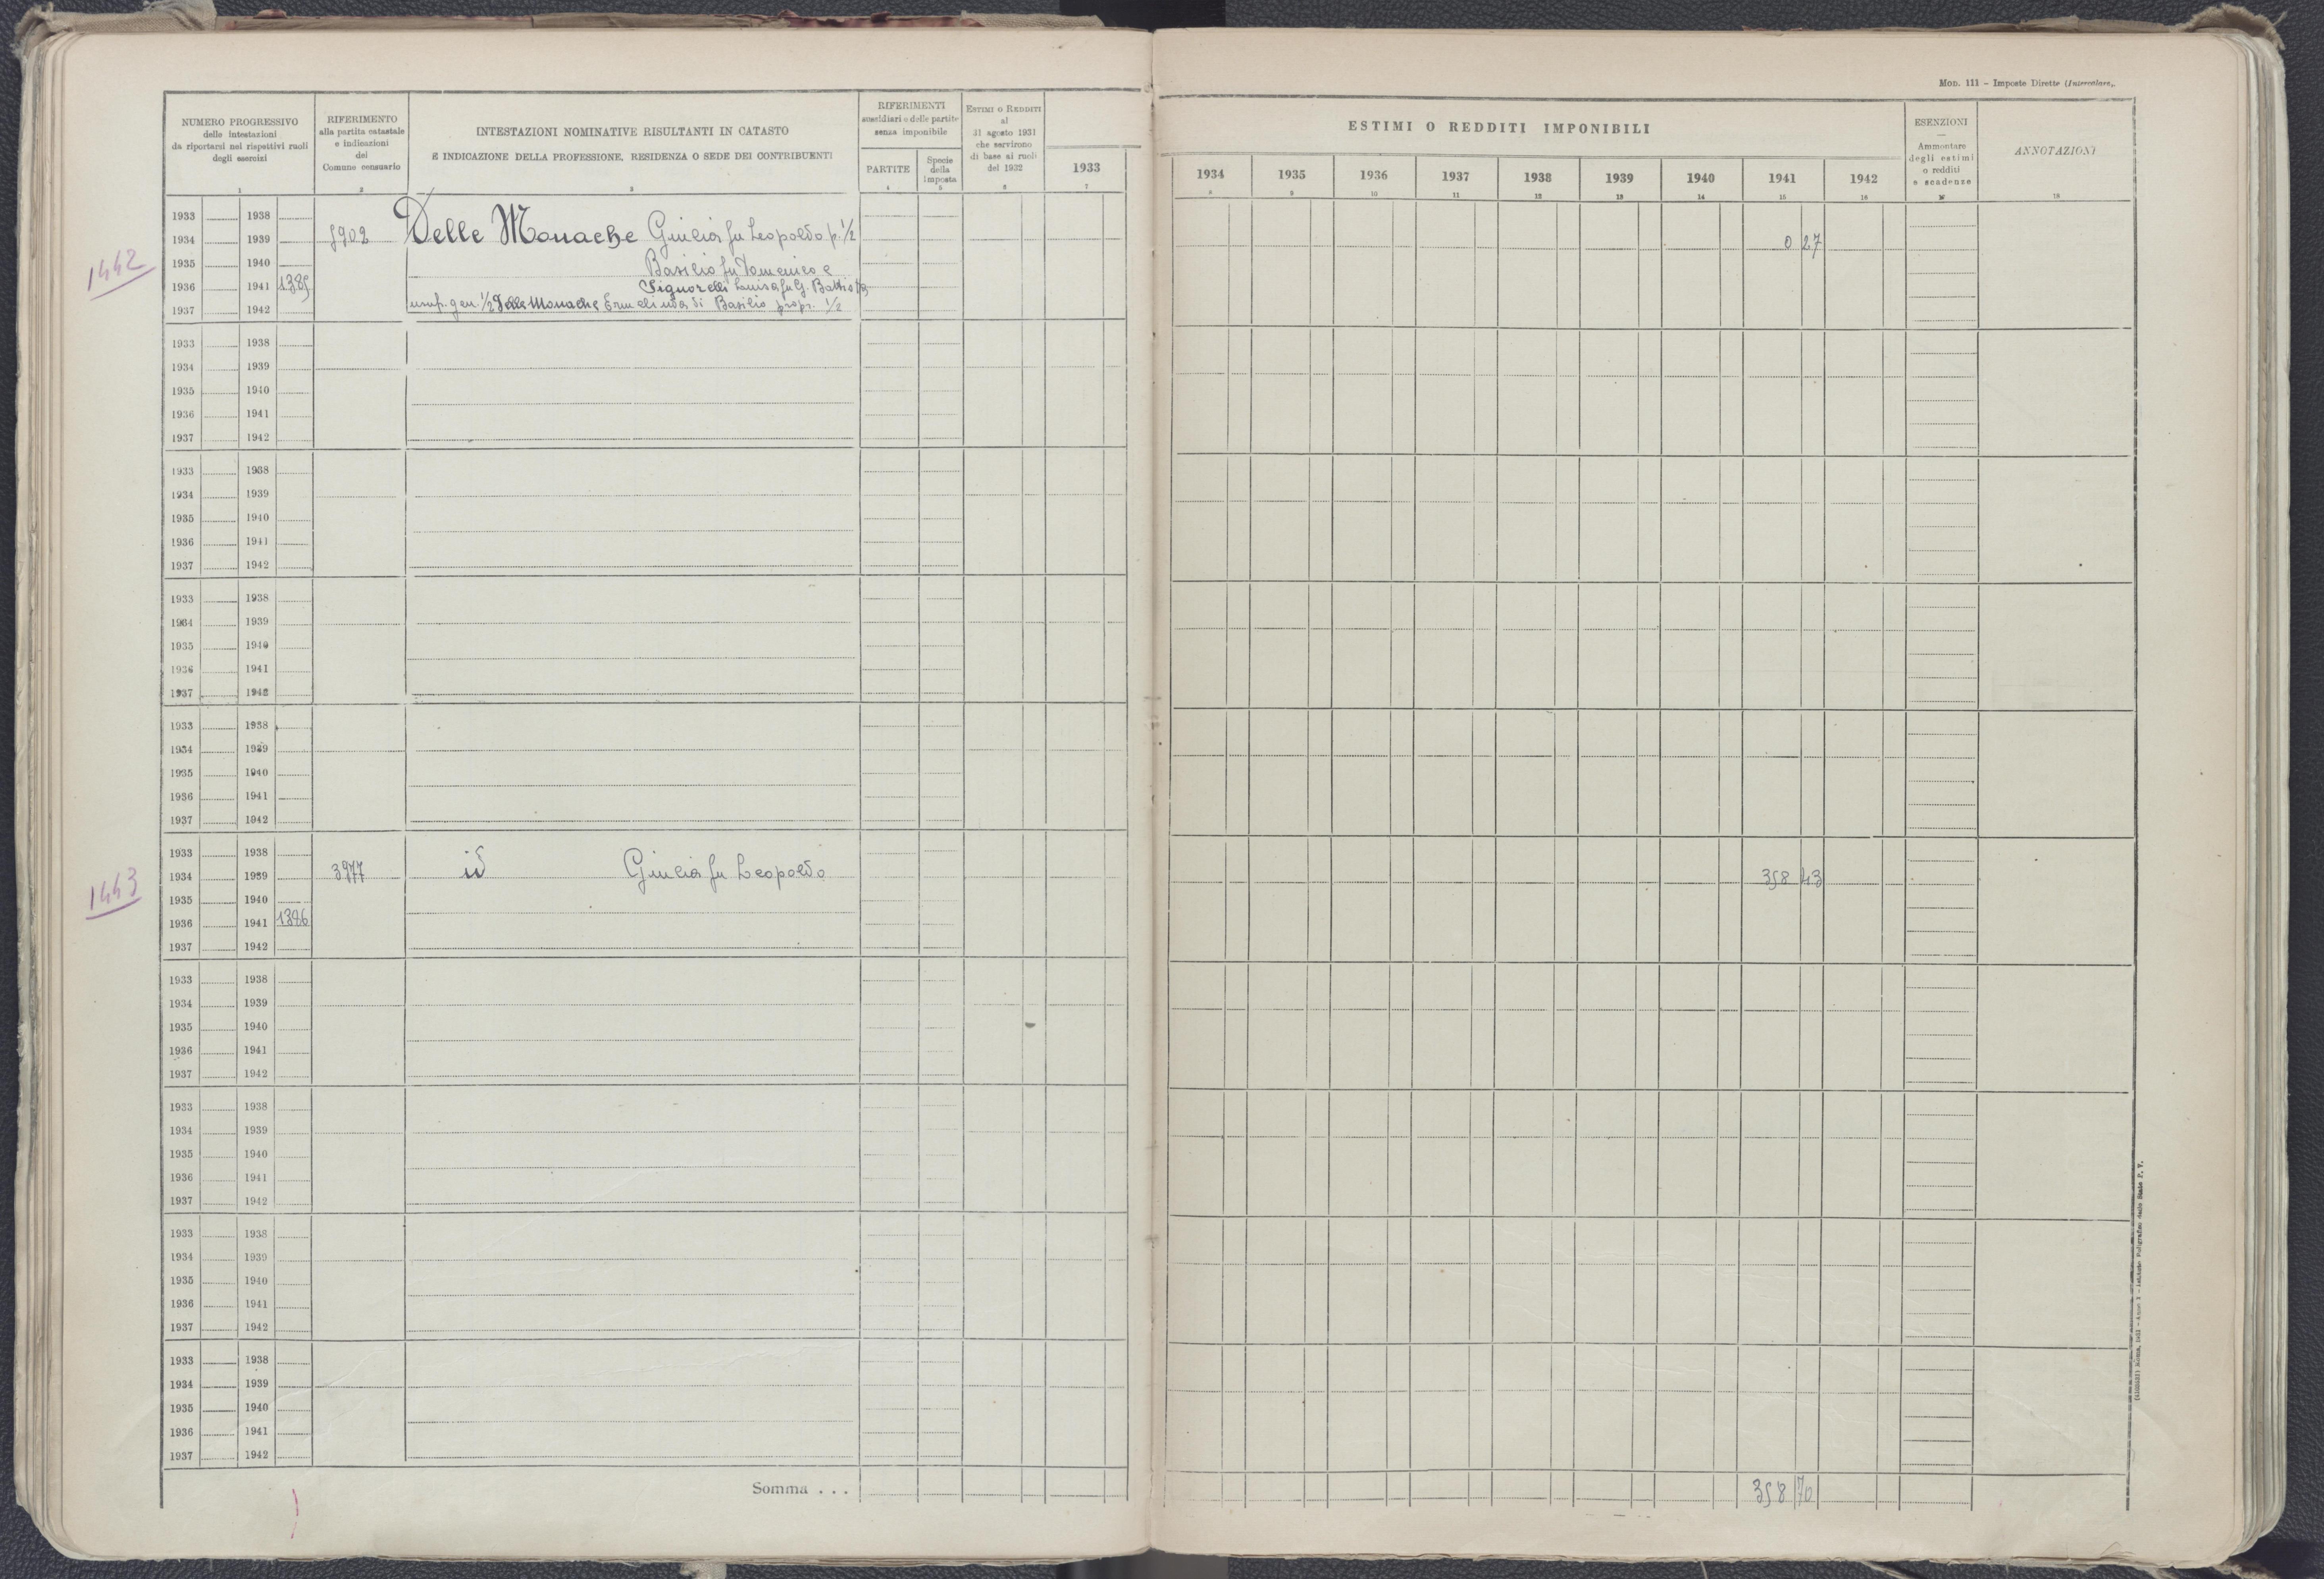 Mod. 111 - Imposte Dirette (Intercalare).
NUMERO PROGRESSIVO
delle intestazioni
da riportarsi nei rispettivi ruoli
degli esercizi
1
RIFERIMENTO
alla partita catastale
e indicazioni
del
Comune censuario
2
INTESTAZIONI NOMINATIVE RISULTANTI IN CATASTO
E INDICAZIONE DELLA PROFESSIONE, RESIDENZA O SEDE DEI CONTRIBUENTI
3
RIFERIMENTI
sussidiari e delle partite
senza imponibile
PARTITE
4
Specie
della
imposta
5
Estimi o Redditi
al
31 agosto 1931
che servirono
di base ai ruoli
del 1932
6
1933
7
ESTIMI O REDDITI IMPONIBILI
1934 1935 1936 1937 1938 1939 1940 1941 1942
8 9 10 11 12 13 14 15 16
ESENZIONI
—
Ammontare
degli estimi
o redditi
e scadenze
17
ANNOTAZIONI
18
1442
1933 1938
1934 1939 5902 Delle Monache Giulia fu Leopoldo p. 1/2 0 27
1935 1940 Basilio fu Domenico e
1936 1941 1385 Signorelli Luisa fu G. Battista
1937 1942 usuf. gen. 1/2 Delle Monache Ermelinda di Basilio propr. 1/2
1933 1938
1934 1939
1935 1940
1936 1941
1937 1942
1933 1938
1934 1939
1935 1940
1936 1941
1937 1942
1933 1938
1934 1939
1935 1940
1936 1941
1937 1942
1933 1938
1934 1939
1935 1940
1936 1941
1937 1942
1443
1933 1938
1934 1939 3977 id Giulia fu Leopoldo 358 43
1935 1940
1936 1941 1386
1937 1942
1933 1938
1934 1939
1935 1940
1936 1941
1937 1942
1933 1938
1934 1939
1935 1940
1936 1941
1937 1942
1933 1938
1934 1939
1935 1940
1936 1941
1937 1942
1933 1938
1934 1939
1935 1940
1936 1941
1937 1942
Somma . . . 358 70